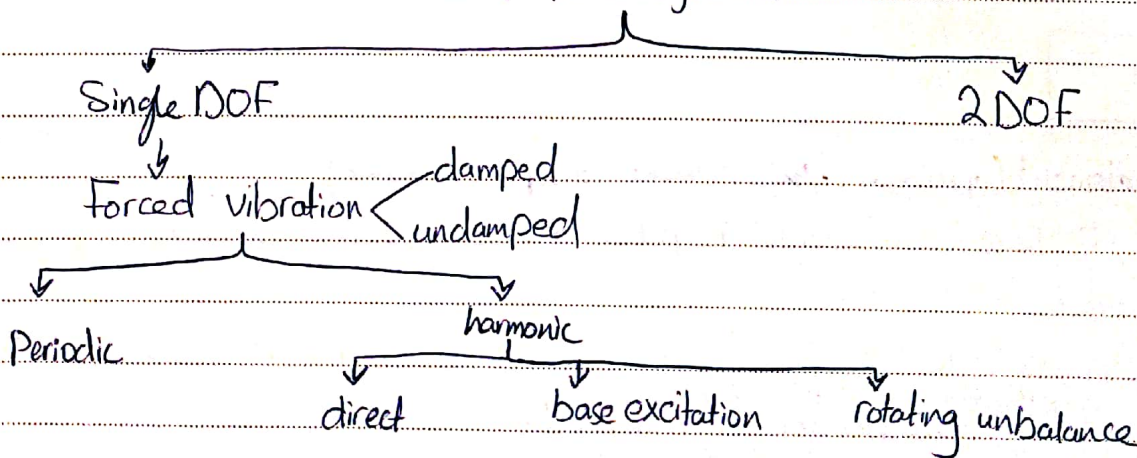 Single DOF
2 DOF
damped
Forced vibration
undamped
Periodic
harmonic
direct
base excitation
rotating unbalance